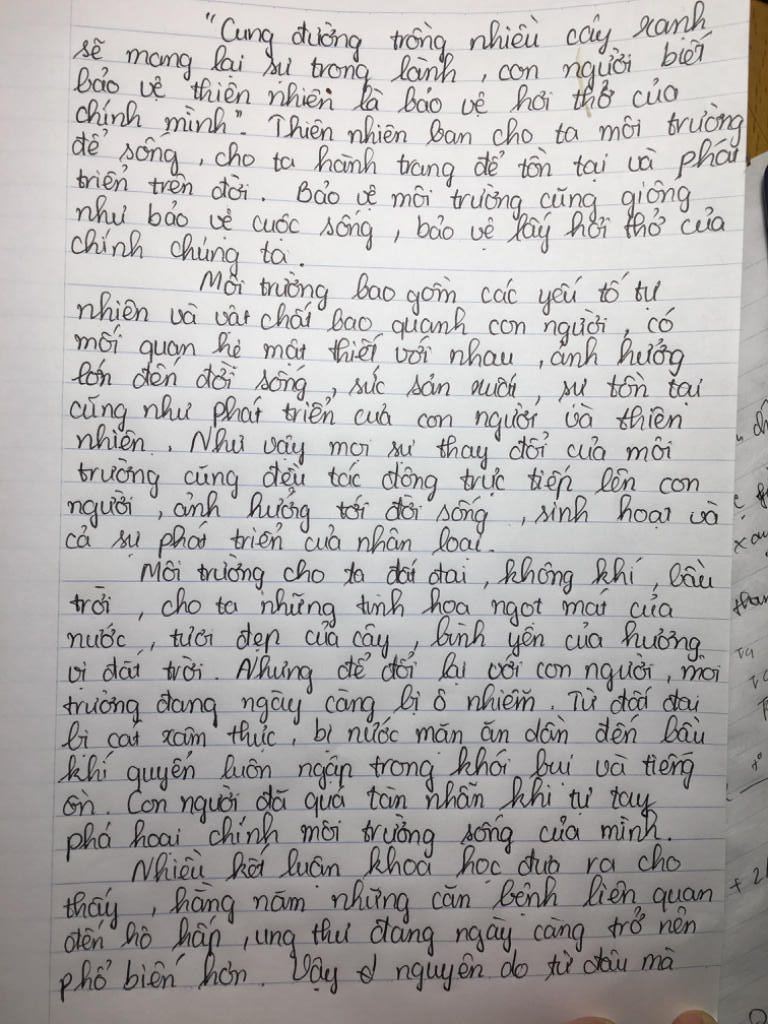 "Cung đường trồng nhiều cây xanh
sẽ mang lại sự trong lành, con người biết
bảo vệ thiên nhiên là bảo vệ hơi thở của
chính mình". Thiên nhiên ban cho ta môi trường
để sống, cho ta hành trang để tồn tại và phát
triển trên đời. Bảo vệ môi trường cũng giống
như bảo vệ cuộc sống, bảo vệ lấy hơi thở của
chính chúng ta.
Môi trường bao gồm các yếu tố tự
nhiên và vật chất bao quanh con người, có
mối quan hệ mật thiết với nhau, ảnh hưởng
lớn đến đời sống, sức sản xuất, sự tồn tại
cũng như phát triển của con người và thiên
nhiên. Như vậy mọi sự thay đổi của môi
trường cũng đều tác động trực tiếp lên con
người, ảnh hưởng tới đời sống, sinh hoạt và
cả sự phát triển của nhân loại.
Môi trường cho ta đất đai, không khí, bầu
trời, cho ta những tinh hoa ngọt mát của
nước, tươi đẹp của cây, bình yên của hương
vị đất trời. Nhưng để đổi lại với con người, môi
trường đang ngày càng bị ô nhiễm. Từ đất đai
bị cát xâm thực, bị nước mặn ăn dần đến bầu
khí quyển luôn ngập trong khói bụi và tiếng
ồn. Con người đã quá tàn nhẫn khi tự tay
phá hoại chính môi trường sống của mình.
Nhiều kết luận khoa học đưa ra cho
thấy, hằng năm những căn bệnh liên quan
đến hô hấp, ung thư đang ngày càng trở nên
phổ biến hơn. Vậy nguyên do từ đâu mà